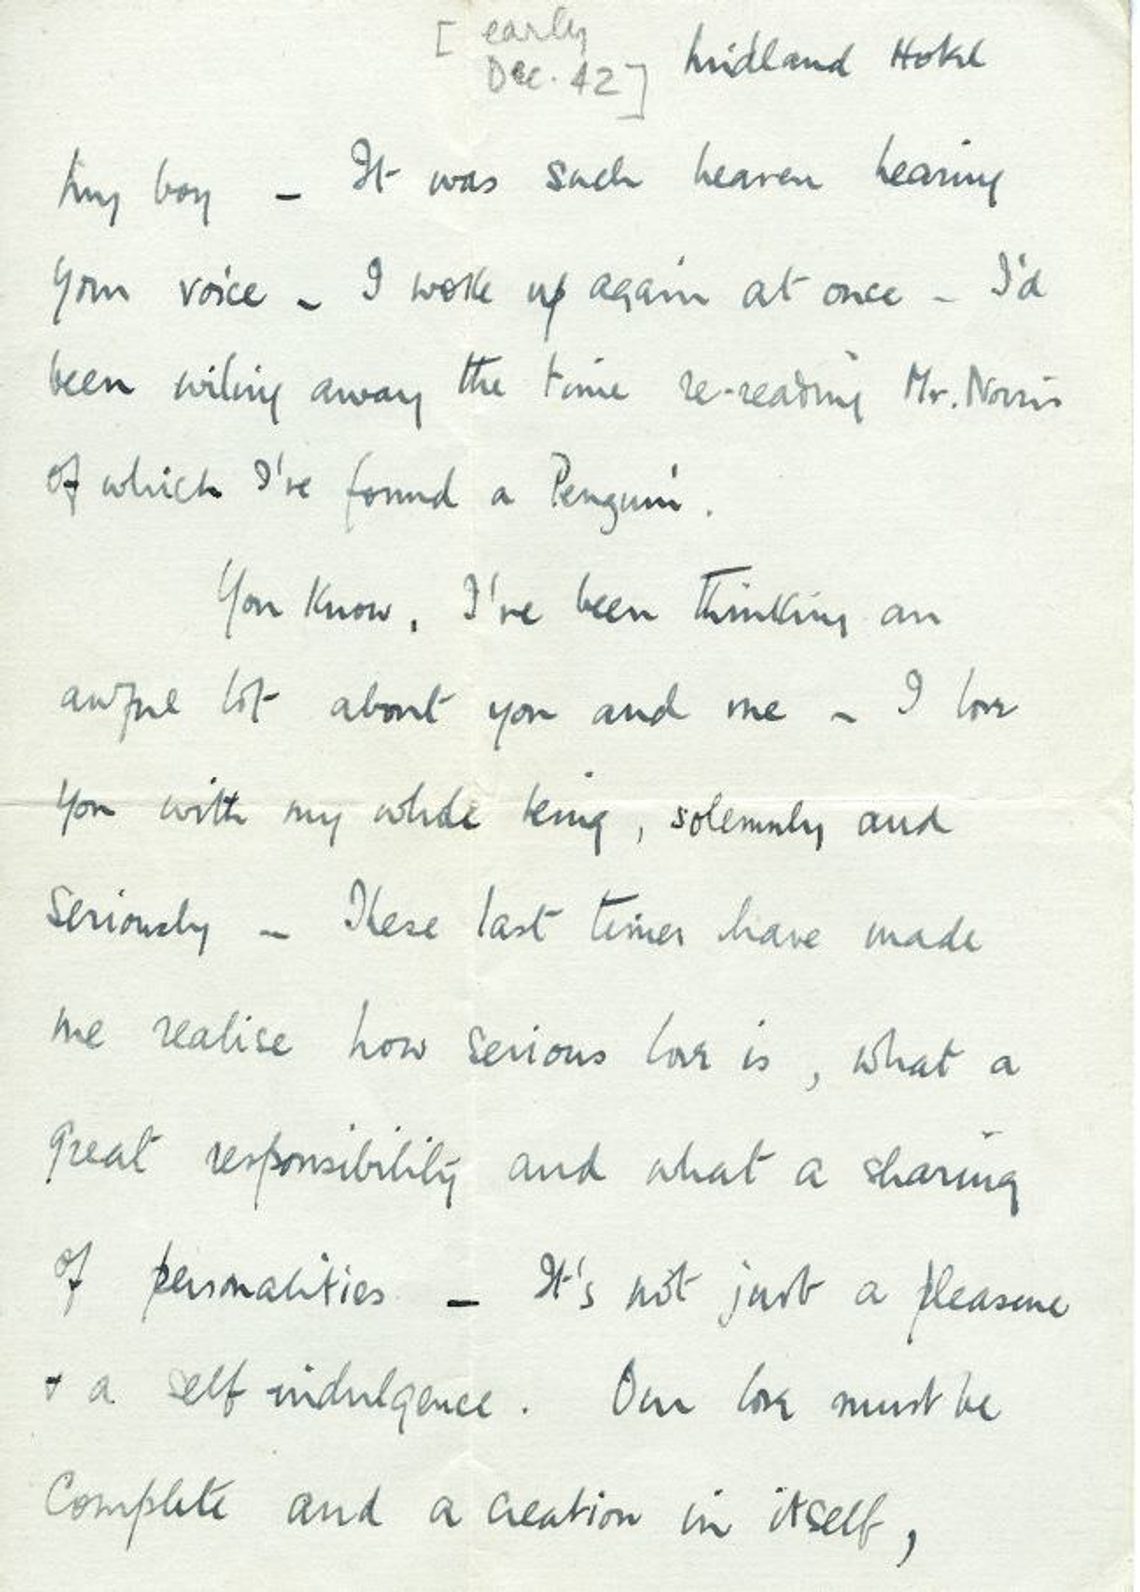 [early
Dec. 42] Midland Hotel
My boy – It was such heaven hearing
your voice – I woke up again at once – I'd
been wiling away the time re-reading Mr. Norris
of which I've found a Penguin.
You know, I've been thinking an
awful lot about you and me – I love
you with my whole being, solemnly and
seriously – These last times have made
me realise how serious love is, what a
great responsibility and what a sharing
of personalities – It's not just a pleasure
& a self indulgence. Our love must be
complete and a creation in itself,